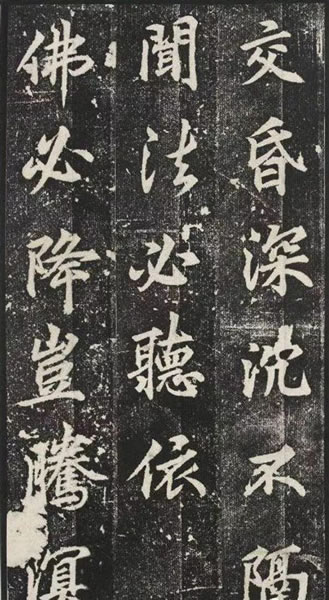 交昏深沈不隔
聞法必聽依
佛必降豈騰溟